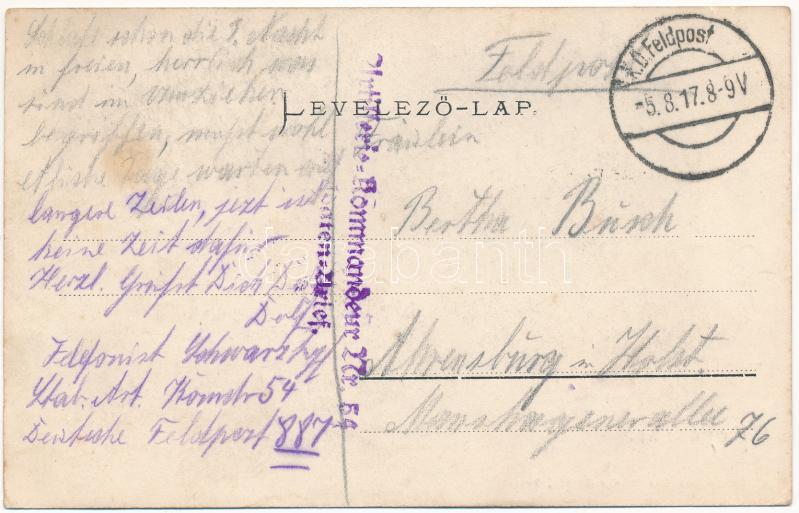 Schlafe schon die 3. Nacht
im freien, herrlich was
sind im Umziehen
begriffen, mußt wohl
etliche Tage warten auf
längere Zeilen, jezt ist
keine Zeit dafür
Herzl. Grüßt Dich Dein
Dolf
Telefonist
Stab. Art. Komdr 54
Deutsche Feldpost 887
Feldpost
LEVELEZŐ-LAP.
K.D. Feldpost
-5.8.17.8-9V
Artillerie-Kommandeur Nr. 54
Fräulein
Bertha Busch
Ahrensburg in Holst.
Manhagenerallee 76
darabanth